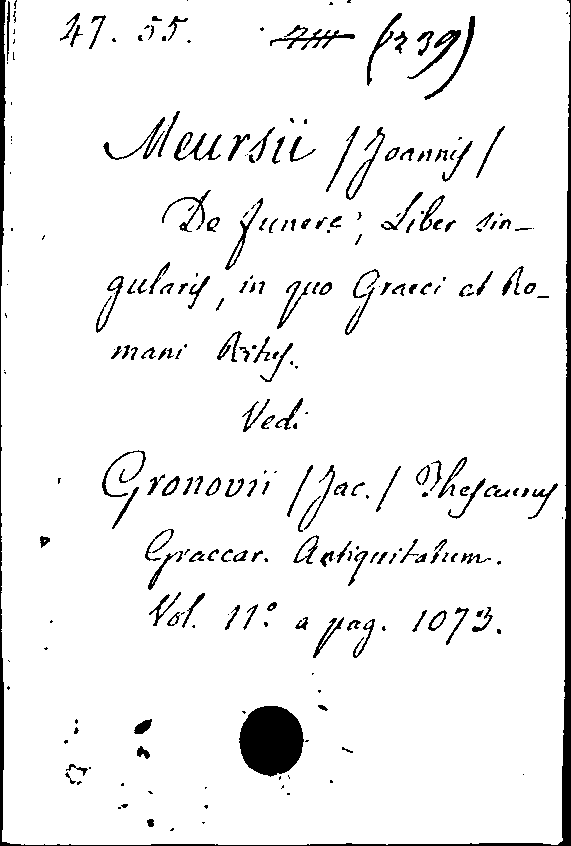 47. 55. (1239)
Meursii /Joannis/
De funere, Liber sin-
gularis, in quo Graeci et Ro-
mani Ritus.
Vedi
Gronovii /Jac./ Thesaurus
Graecar. Antiquitatum.
Vol. 11º a pag. 1073.